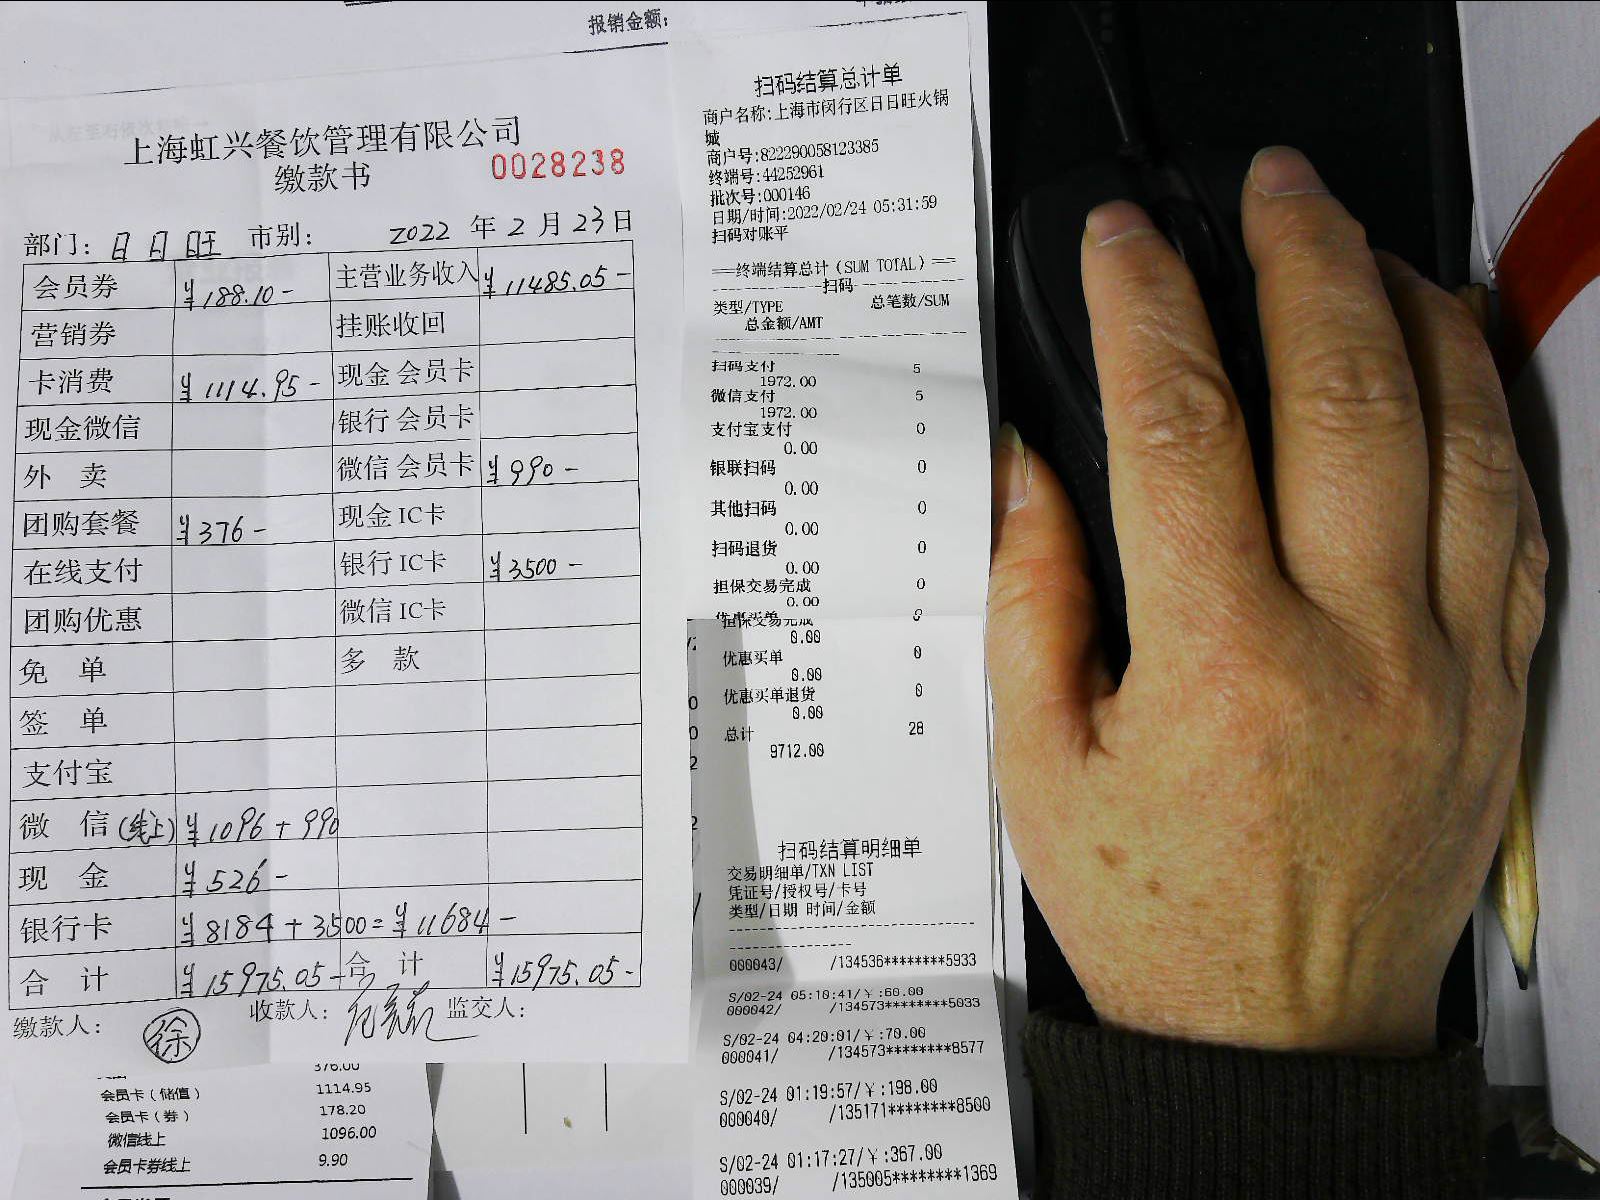 报销金额:
上海虹兴餐饮管理有限公司
缴款书 0028238
部门: 日日旺 市别: 2022 年 2 月 23 日
会员券 ¥188.10- 主营业务收入 ¥11485.05-
营销券 挂账收回
卡消费 ¥1114.95- 现金 会员卡
现金微信 银行 会员卡
外 卖 微信 会员卡 ¥990-
团购套餐 ¥376- 现金 IC卡
在线支付 银行 IC卡 ¥3500-
团购优惠 微信 IC卡
免 单 多 款
签 单
支付宝
微 信(线上) ¥1096+990
现 金 ¥526-
银行卡 ¥8184+3500=¥11684-
合 计 ¥15975.05- 合 计 ¥15975.05-
缴款人: 徐 收款人: 监交人:
376.00
会员卡(储值) 1114.95
会员卡(券) 178.20
微信线上 1096.00
会员卡券线上 9.90
扫码结算总计单
商户名称:上海市闵行区日日旺火锅
城
商户号:822290058123385
终端号:44252961
批次号:000146
日期/时间:2022/02/24 05:31:59
扫码对账平
===终端结算总计(SUM TOTAL)===
扫码
类型/TYPE 总笔数/SUM
总金额/AMT
扫码支付 5
1972.00
微信支付 5
1972.00
支付宝支付 0
0.00
银联扫码 0
0.00
其他扫码 0
0.00
扫码退货 0
0.00
担保交易完成 0
0.00
担保交易完成 0
0.00
优惠买单 0
0.00
优惠买单退货 0
0.00
总计 28
9712.00
扫码结算明细单
交易明细单/TXN LIST
凭证号/授权号/卡号
类型/日期 时间/金额
000043/ /134536********5933
S/02-24 05:10:41/¥:60.00
000042/ /134573********5033
S/02-24 04:20:01/¥:70.00
000041/ /134573********8577
S/02-24 01:19:57/¥:198.00
000040/ /135171********8500
S/02-24 01:17:27/¥:367.00
000039/ /135005********1369